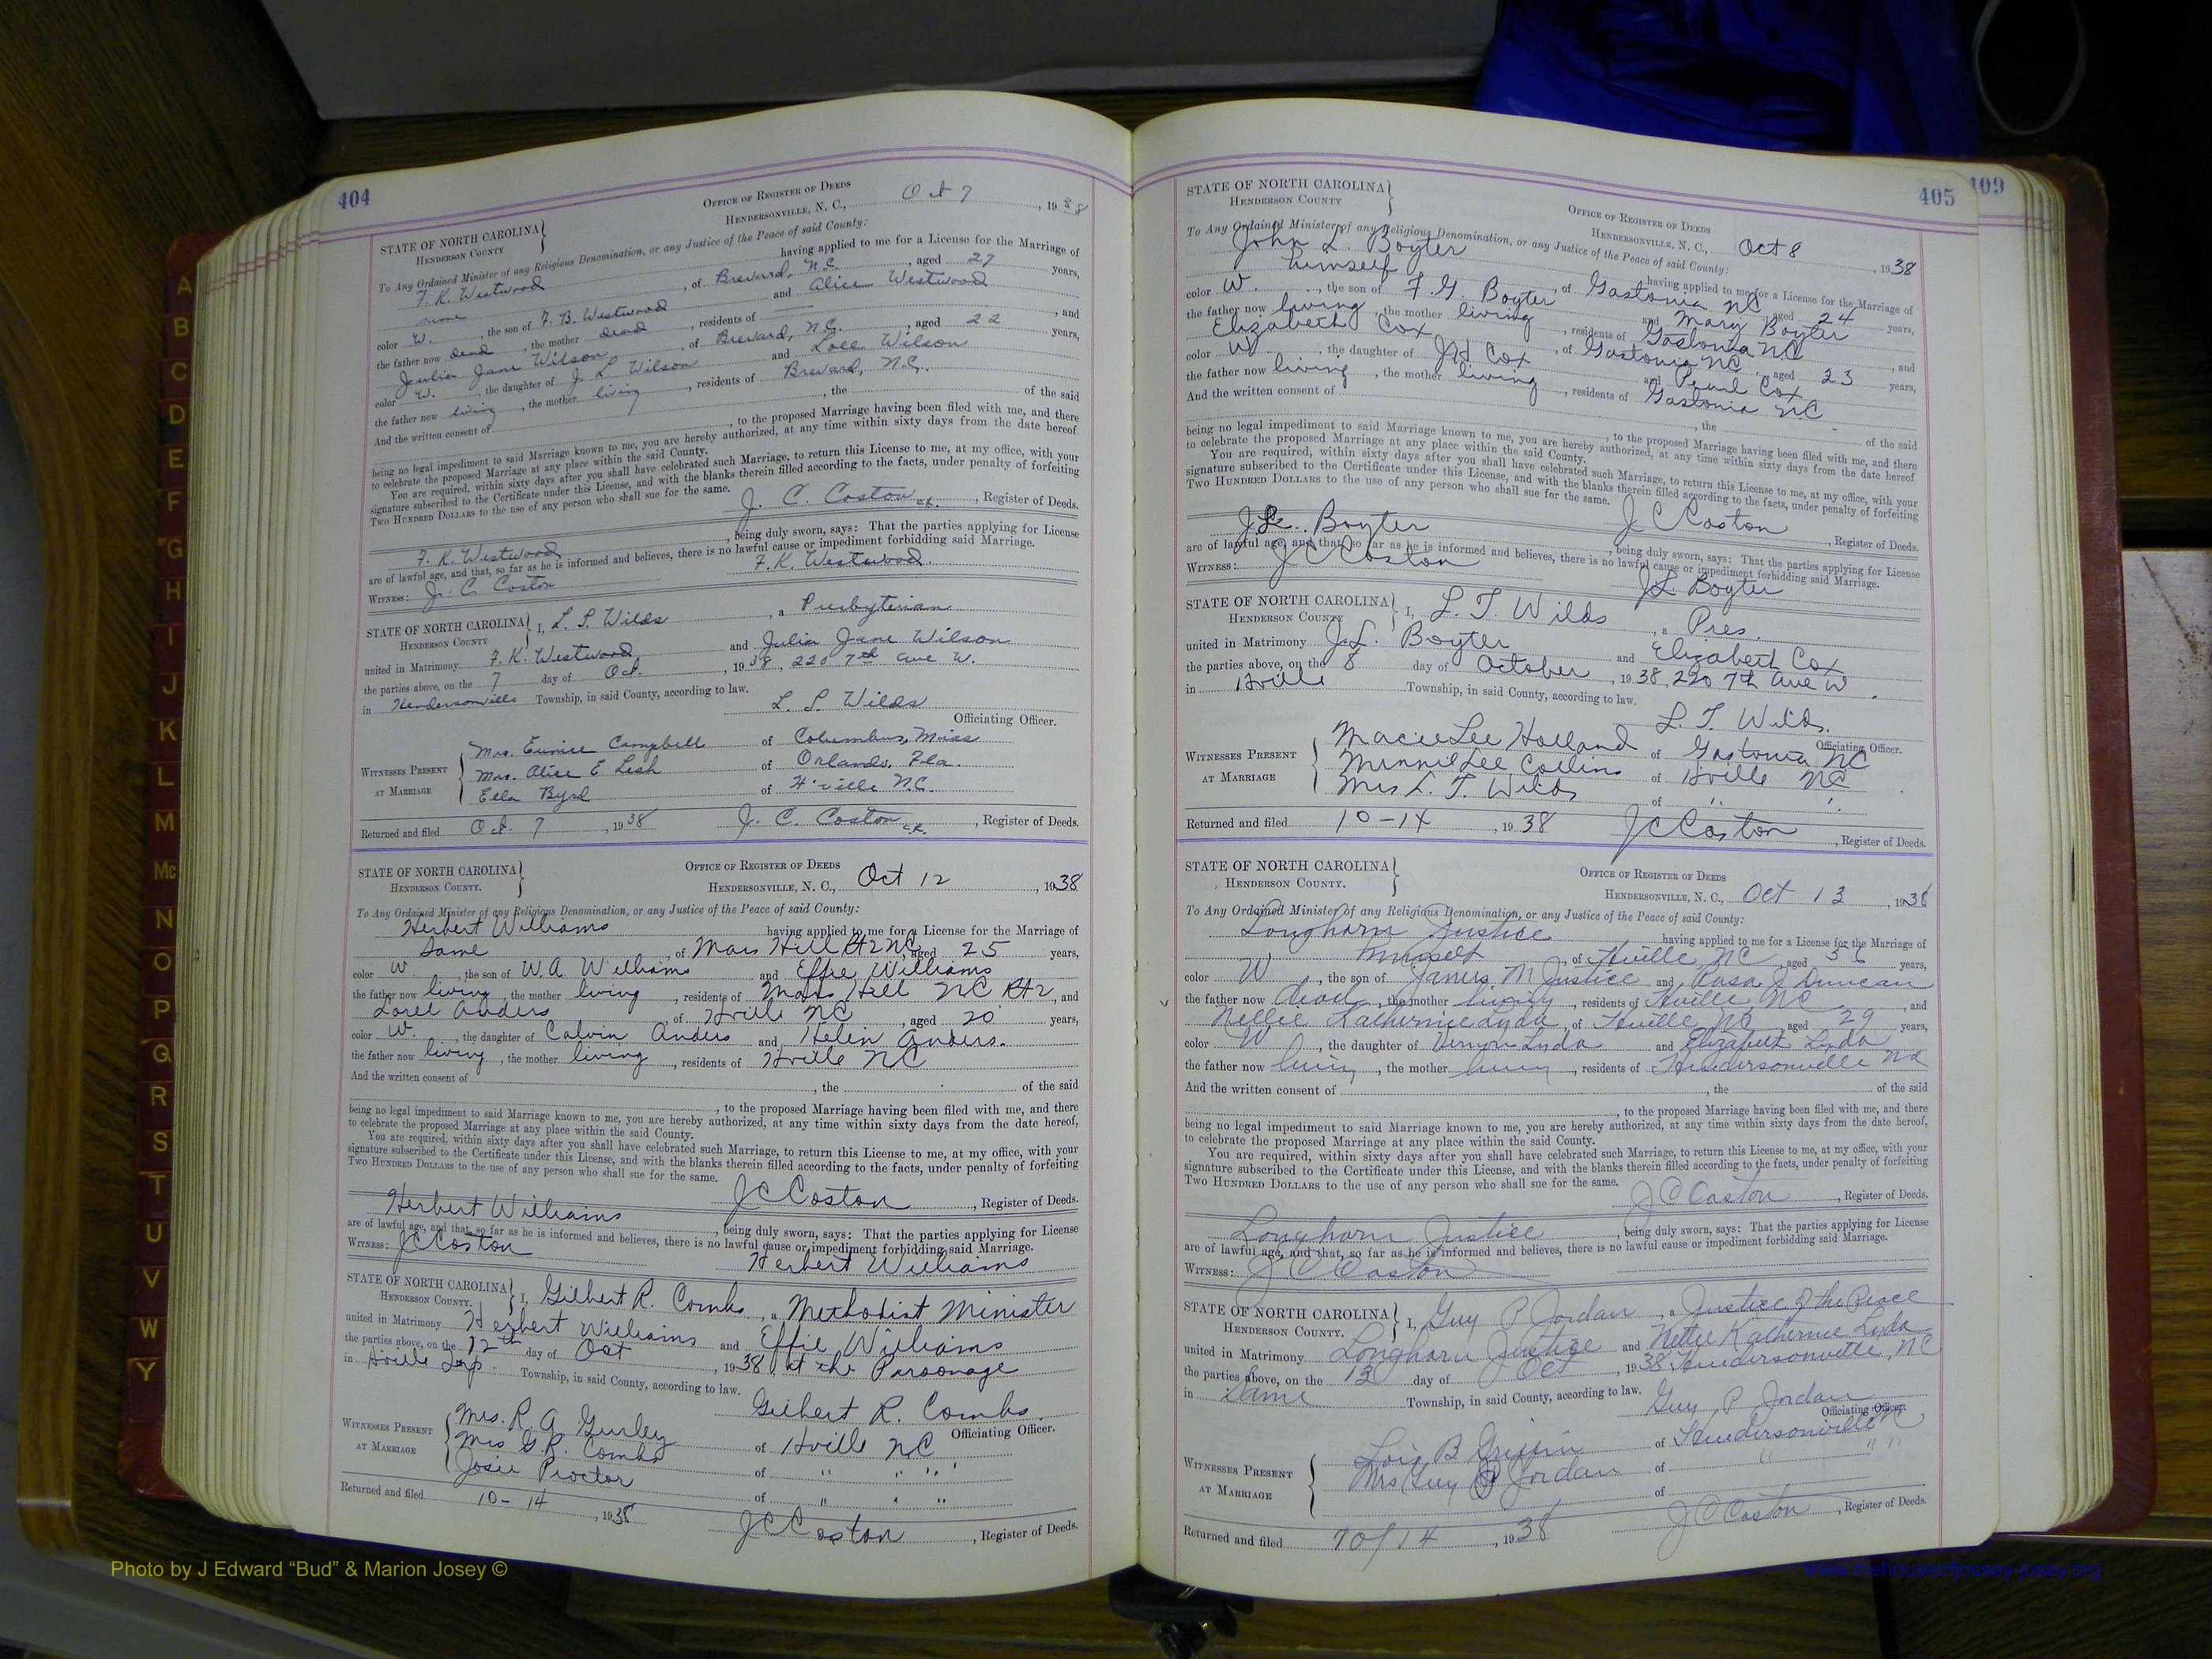 404
OFFICE OF REGISTER OF DEEDS
HENDERSONVILLE, N. C., Oct 7, 1938
STATE OF NORTH CAROLINA
HENDERSON COUNTY
To Any Ordained Minister of any Religious Denomination, or any Justice of the Peace of said County:
F. K. Westwood having applied to me for a License for the Marriage of
same, of Brevard, N.C., aged 27 years,
color W., the son of F. B. Westwood and Alice Westwood
the father now dead, the mother dead, residents of , and
Julia Jane Wilson, of Brevard, N.C., aged 22 years,
color W., the daughter of J. L. Wilson and Wilson
the father now living, the mother living, residents of Brevard, N.C.
And the written consent of , the of the said
, to the proposed Marriage having been filed with me, and there
being no legal impediment to said Marriage known to me, you are hereby authorized, at any time within sixty days from the date hereof
to celebrate the proposed Marriage at any place within the said County.
You are required, within sixty days after you shall have celebrated such Marriage, to return this License to me, at my office, with your
signature subscribed to the Certificate under this License, and with the blanks therein filled according to the facts, under penalty of forfeiting
TWO HUNDRED DOLLARS to the use of any person who shall sue for the same.
J. C. Coston, Register of Deeds.
F. K. Westwood, being duly sworn, says: That the parties applying for License
are of lawful age, and that, so far as he is informed and believes, there is no lawful cause or impediment forbidding said Marriage.
WITNESS: J. C. Coston F. K. Westwood.
STATE OF NORTH CAROLINA
HENDERSON COUNTY
I, L. T. Wilds, a Presbyterian
united in Matrimony F. K. Westwood and Julia Jane Wilson
the parties above, on the 7 day of Oct., 1938, 220 7th Ave W.
in Hendersonville Township, in said County, according to law.
L. T. Wilds
Officiating Officer.
WITNESSES PRESENT AT MARRIAGE
Mrs. Eunice Campbell of Columbus, Miss
Mrs. Alice E Lesh of Orlando, Fla.
Ella Byrd of H'ville N.C.
Returned and filed Oct. 7, 1938 J. C. Coston, Register of Deeds.
STATE OF NORTH CAROLINA
HENDERSON COUNTY.
OFFICE OF REGISTER OF DEEDS
HENDERSONVILLE, N. C., Oct 12, 1938
To Any Ordained Minister of any Religious Denomination, or any Justice of the Peace of said County:
Herbert Williams having applied to me for a License for the Marriage of
Same, of Mars Hill Rt 2 NC, aged 25 years,
color W, the son of W.A. Williams and Effie Williams
the father now living, the mother living, residents of Mars Hill NC Rt 2, and
Anders of Hville NC, aged 20 years,
color W., the daughter of Calvin Anders and Helen Anders.
the father now living, the mother living, residents of Hville NC
And the written consent of
, the of the said
, to the proposed Marriage having been filed with me, and there
being no legal impediment to said Marriage known to me, you are hereby authorized, at any time within sixty days from the date hereof,
to celebrate the proposed Marriage at any place within the said County.
You are required, within sixty days after you shall have celebrated such Marriage, to return this License to me, at my office, with your
signature subscribed to the Certificate under this License, and with the blanks therein filled according to the facts, under penalty of forfeiting
TWO HUNDRED DOLLARS to the use of any person who shall sue for the same.
J C Coston, Register of Deeds.
Herbert Williams, being duly sworn, says: That the parties applying for License
are of lawful age, and that, so far as he is informed and believes, there is no lawful cause or impediment forbidding said Marriage.
WITNESS: J C Coston Herbert Williams
STATE OF NORTH CAROLINA
HENDERSON COUNTY.
I, Gilbert R. Combs, a Methodist Minister
united in Matrimony Herbert Williams and Effie Williams
the parties above, on the 12th day of Oct, 1938, at the Parsonage
in Hville Township, in said County, according to law.
Gilbert R. Combs.
Officiating Officer.
WITNESSES PRESENT AT MARRIAGE
Mrs. R. A. Gurley of Hville NC
Mrs G.R. Combs of " " "
Josie Proctor of " " "
Returned and filed 10-14, 1938 J C Coston, Register of Deeds.
405
109
STATE OF NORTH CAROLINA
HENDERSON COUNTY
OFFICE OF REGISTER OF DEEDS
HENDERSONVILLE, N. C., Oct 8, 1938
To Any Ordained Minister of any Religious Denomination, or any Justice of the Peace of said County:
John L. Boyter having applied to me for a License for the Marriage of
himself, of Gastonia NC, aged 24 years,
color W., the son of F. G. Boyter and Mary Boyter
the father now living, the mother living, residents of Gastonia NC, and
Elizabeth Cox, of Gastonia NC, aged 23 years,
color W, the daughter of J H Cox and Pearl Cox
the father now living, the mother living, residents of Gastonia NC
And the written consent of
, the of the said
, to the proposed Marriage having been filed with me, and there
being no legal impediment to said Marriage known to me, you are hereby authorized, at any time within sixty days from the date hereof
to celebrate the proposed Marriage at any place within the said County.
You are required, within sixty days after you shall have celebrated such Marriage, to return this License to me, at my office, with your
signature subscribed to the Certificate under this License, and with the blanks therein filled according to the facts, under penalty of forfeiting
TWO HUNDRED DOLLARS to the use of any person who shall sue for the same.
J C Coston, Register of Deeds.
J. L. Boyter, being duly sworn, says: That the parties applying for License
are of lawful age, and that, so far as he is informed and believes, there is no lawful cause or impediment forbidding said Marriage.
WITNESS: J C Coston J. L. Boyter
STATE OF NORTH CAROLINA
HENDERSON COUNTY
I, L. T. Wilds, a Pres.
united in Matrimony J. L. Boyter and Elizabeth Cox
the parties above, on the 8 day of October, 1938, 220 7th Ave W.
in Hville Township, in said County, according to law.
L. T. Wilds.
Officiating Officer.
WITNESSES PRESENT AT MARRIAGE
Macie Lee Holland of Gastonia NC
Minnie Lee Collins of Hville NC
Mrs L. T. Wilds of " "
Returned and filed 10-14, 1938 J C Coston, Register of Deeds.
STATE OF NORTH CAROLINA
HENDERSON COUNTY.
OFFICE OF REGISTER OF DEEDS
HENDERSONVILLE, N. C., Oct 13, 1938
To Any Ordained Minister of any Religious Denomination, or any Justice of the Peace of said County:
Longhorn Justice having applied to me for a License for the Marriage of
himself, of Hville, NC, aged 36 years,
color W, the son of James M Justice and Rosa J Duncan
the father now dead, the mother living, residents of Hville, NC, and
Nellie Katherine Lyda, of Hville NC aged 29 years,
color W, the daughter of Vernon Lyda and Elizabeth Lyda
the father now living, the mother living, residents of Hendersonville NC
And the written consent of , the of the said
, to the proposed Marriage having been filed with me, and there
being no legal impediment to said Marriage known to me, you are hereby authorized, at any time within sixty days from the date hereof,
to celebrate the proposed Marriage at any place within the said County.
You are required, within sixty days after you shall have celebrated such Marriage, to return this License to me, at my office, with your
signature subscribed to the Certificate under this License, and with the blanks therein filled according to the facts, under penalty of forfeiting
TWO HUNDRED DOLLARS to the use of any person who shall sue for the same.
J C Coston, Register of Deeds.
Longhorn Justice, being duly sworn, says: That the parties applying for License
are of lawful age, and that, so far as he is informed and believes, there is no lawful cause or impediment forbidding said Marriage.
WITNESS: J C Coston
STATE OF NORTH CAROLINA
HENDERSON COUNTY.
I, Guy P Jordan, a Justice of the Peace
united in Matrimony Longhorn Justice and Nellie Katherine Lyda
the parties above, on the 13 day of Oct, 1938 Hendersonville, NC
in Same Township, in said County, according to law.
Guy P Jordan
Officiating Officer.
WITNESSES PRESENT AT MARRIAGE
Lois B Griffin of Hendersonville NC
Mrs Guy P Jordan of " " "
of
Returned and filed 10/14, 1938 J C Coston, Register of Deeds.
A
B
C
D
E
F
G
H
I
J
K
L
M
Mc
N
O
P
Q
R
S
T
U
V
W
Y
Photo by J Edward “Bud” & Marion Josey ©
www.thehouseofjossey-josey.org